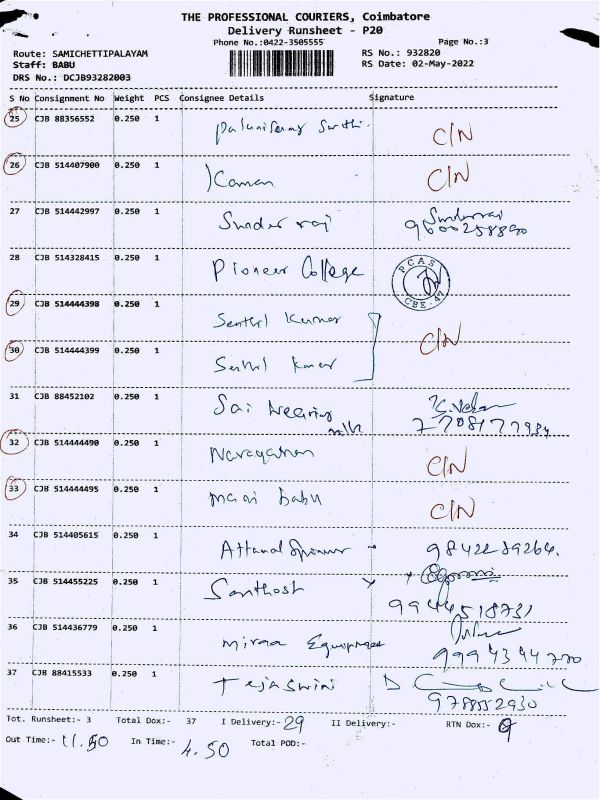 THE PROFESSIONAL COURIERS, Coimbatore
Delivery Runsheet - P20
Phone No.:0422-3505555 Page No.:3
Route: SAMICHETTIPALAYAM RS No.: 932820
Staff: BABU RS Date: 02-May-2022
DRS No.: DCJB93282003
S No Consignment No Weight PCS Consignee Details Signature
25 CJB 88356552 0.250 1 C/N
26 CJB 514407900 0.250 1 Kaman C/N
27 CJB 514442997 0.250 1 Sunder raj Sunderraj
9600258890
28 CJB 514328415 0.250 1 Pioneer College PCAS CBE-47
29 CJB 514444398 0.250 1 Senthil Kumar
C/N
30 CJB 514444399 0.250 1 Senthil Kumar
31 CJB 88452102 0.250 1 Sai Hearing
7708177934
32 CJB 514444490 0.250 1 Narayanan C/N
33 CJB 514444495 0.250 1 Mani babu C/N
34 CJB 514405615 0.250 1 9842289264.
35 CJB 514455225 0.250 1 Santhosh
9944518731
36 CJB 514436779 0.250 1
9994344770
37 CJB 88415533 0.250 1 Tejaswini
9788552930
Tot. Runsheet:- 3 Total Dox:- 37 I Delivery:- 29 II Delivery:- RTN Dox:-
Out Time:- 11.50 In Time:- 4.50 Total POD:-